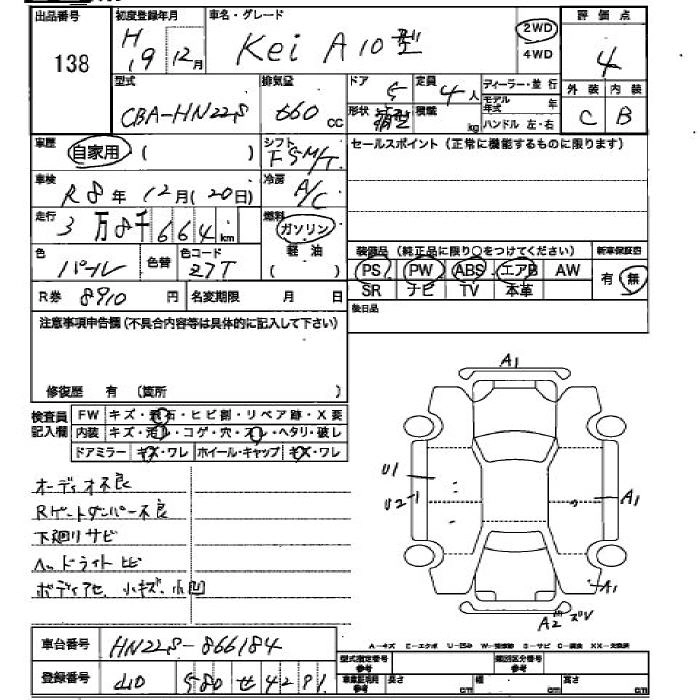 出品番号 138
初度登録年月 H19 12月
車名・グレード Kei A 10型
2WD
4WD
評価点 4
外装 C 内装 B
型式 CBA-HN22S
排気量 660 cc
ドア 5 定員 4人
形状 積載 kg
ディーラー・並行
モデル年式 年
ハンドル 左・右
車歴 自家用 ( )
シフト F5M/T
セールスポイント（正常に機能するものに限ります）
車検 R8年12月(20日)
冷房 A/C
走行 3万8千664km
燃料 ガソリン
軽油
色 パール 色替 色コード Z7T
装備品（純正品に限り○をつけてください） 新車保証書
PS PW ABS エアB AW 有 無
SR ナビ TV 本革
R券 8910円 名変期限 月 日
後日品
注意事項申告欄（不具合内容等は具体的に記入して下さい）
修復歴 有（箇所 ）
検査員記入欄
FW キズ・飛石・ヒビ割・リペア跡・X要
内装 キズ・汚れ・コゲ・穴・スレ・ヘタリ・破レ
ドアミラー キズ・ワレ ホイール・キャップ キズ・ワレ
オーディオ不良
Rゲートダンパー不良
下廻リサビ
ヘッドライトヒビ
ボディアセ 小キズ、小凹
A1
U1
U2-1
A1
A1
A2
車台番号 HN22S-866184
登録番号 580 せ 4291
A-キズ E-エクボ U-凹み S-サビ C-腐食 XX-交換済
型式指定番号 参考
類別区分番号 参考
車庫証明用 参考 長さ cm 幅 cm 高さ cm